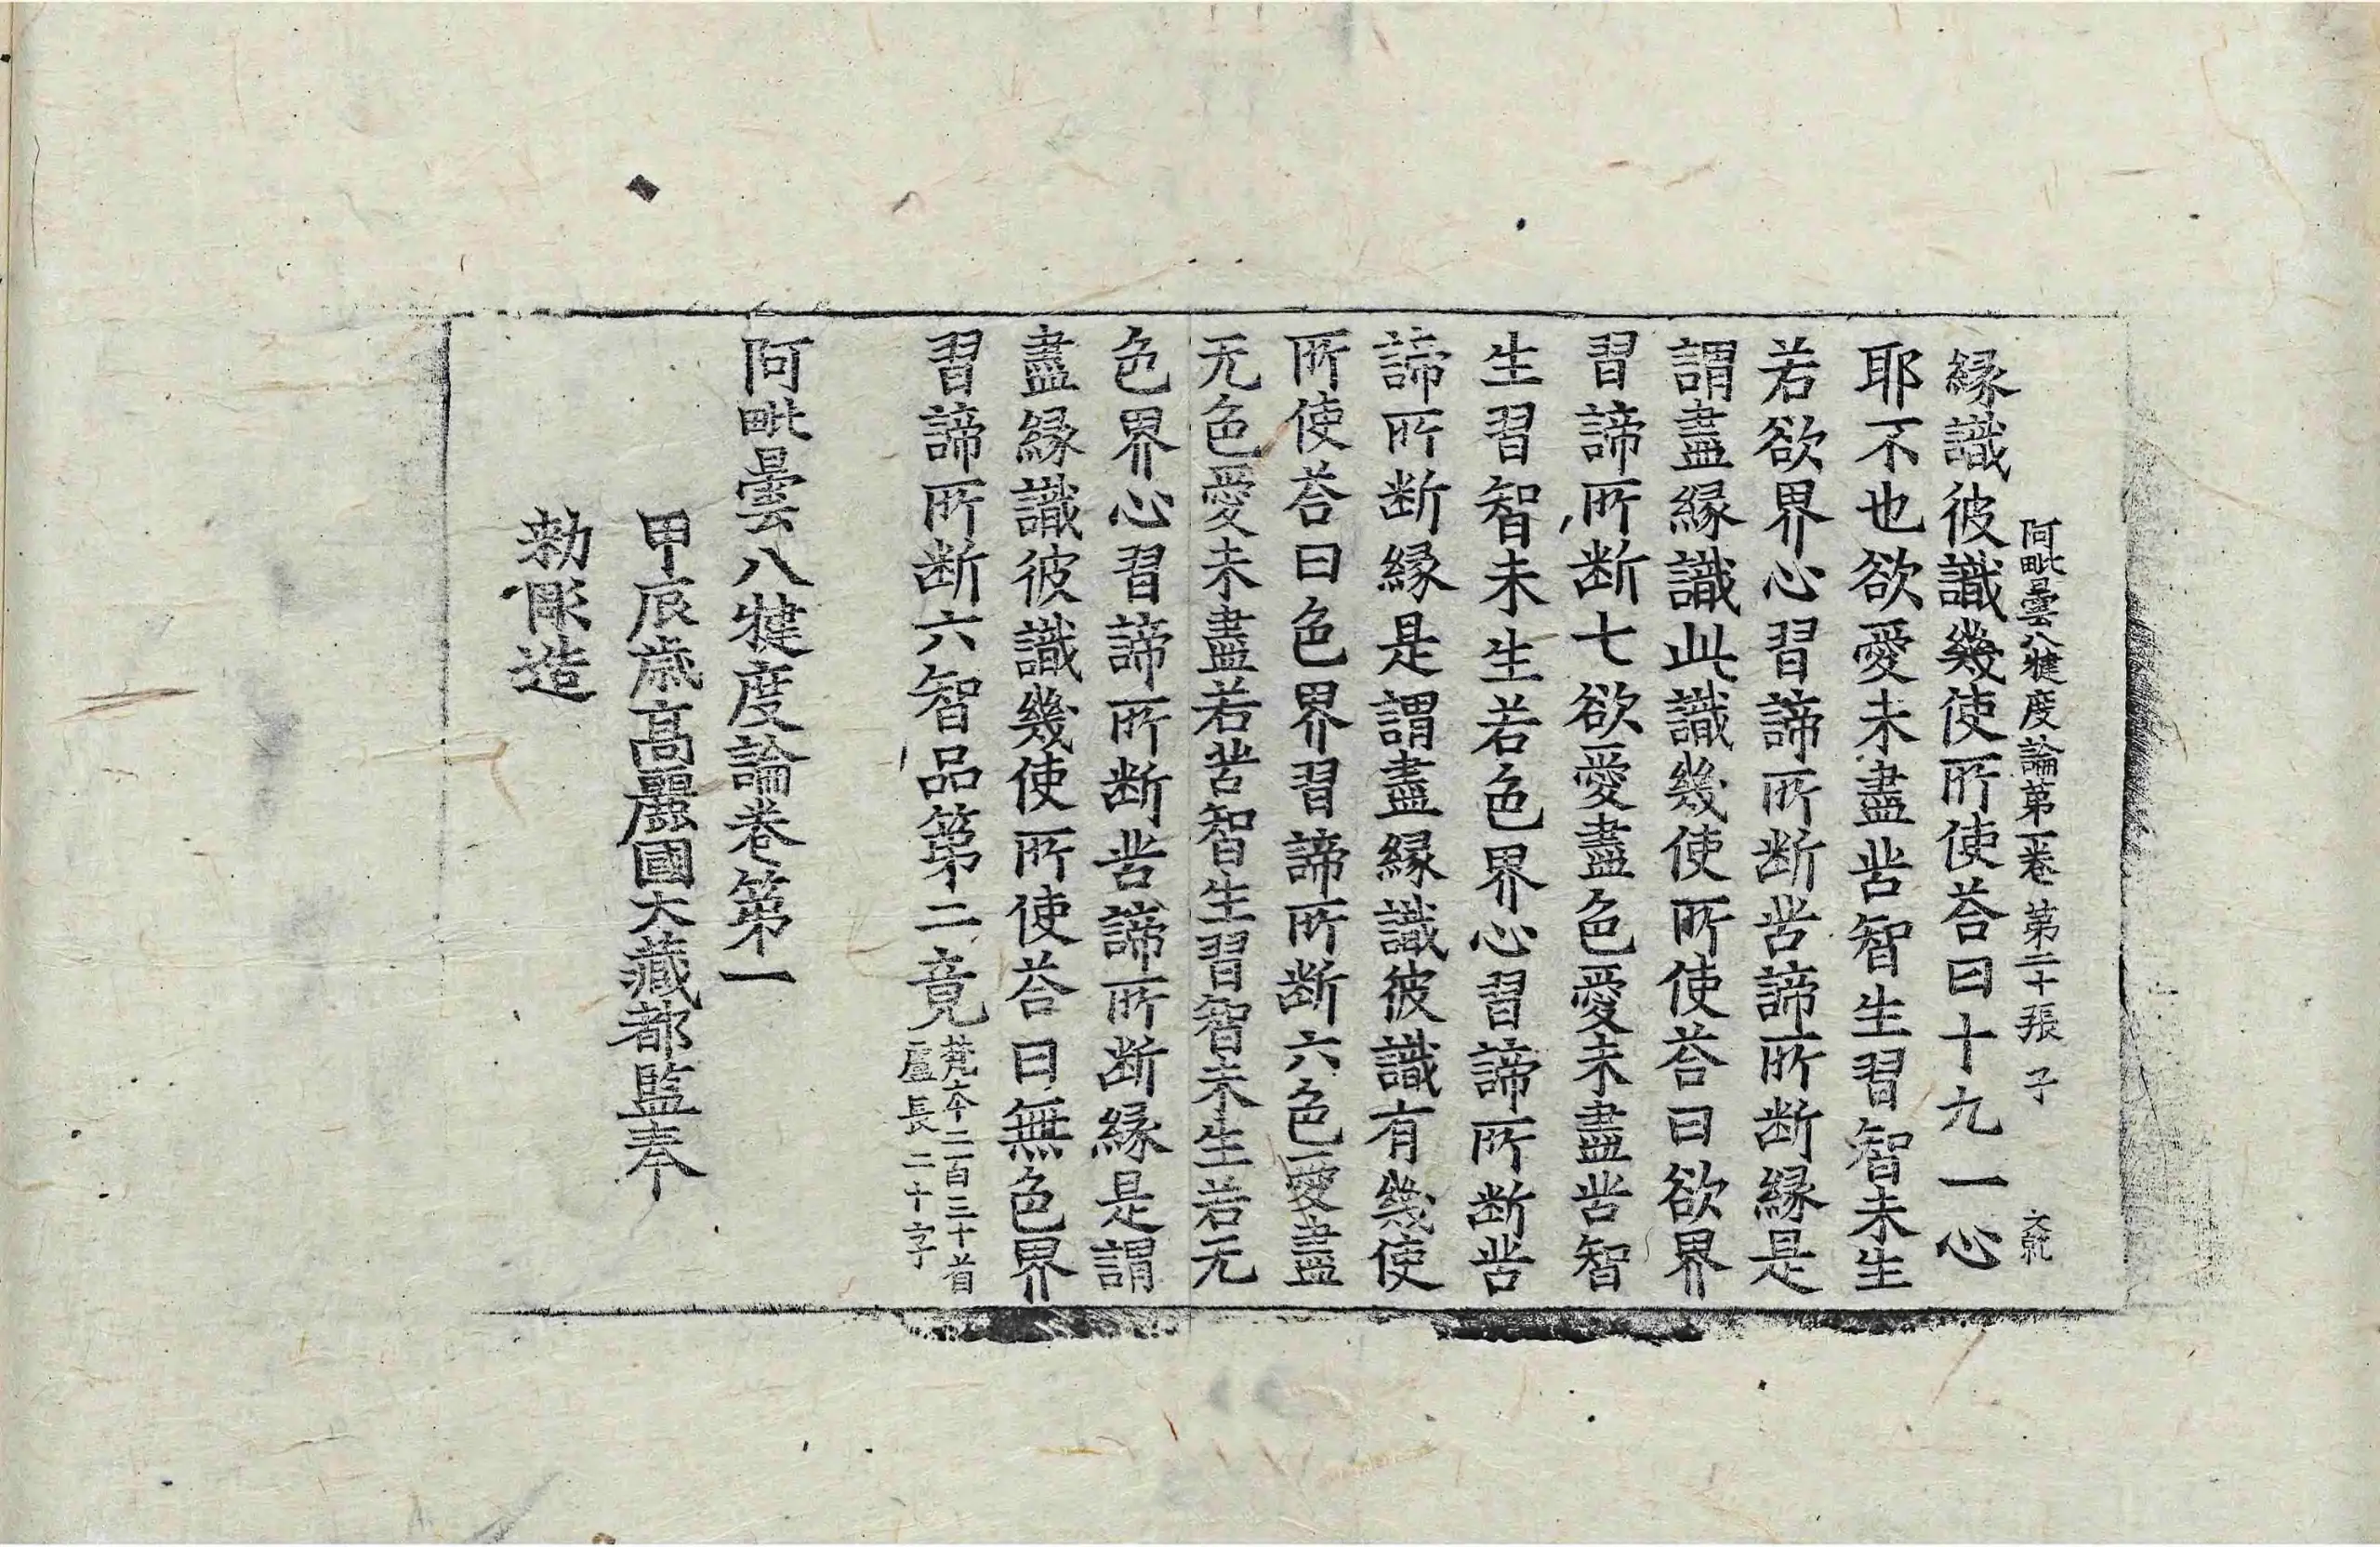 阿毗曇八犍度論第一卷 第二十張 子 文軌
縁識彼識幾使所使荅曰十九一心
耶不也欲愛未盡苦智生習智未生
若欲界心習諦所断苦諦所断縁是
謂盡縁識此識幾使所使荅曰欲界
習諦所断七欲愛盡色愛未盡苦智
生習智未生若色界心習諦所断苦
諦所断縁是謂盡縁識彼識有幾使
所使荅曰色界習諦所断六色愛盡
无色愛未盡若苦智生習智未生若无
色界心習諦所断苦諦所断縁是謂
盡縁識彼識幾使所使荅曰無色界
習諦所断六智品第二竟 梵本二百三十首
盧長二十字
阿毗曇八犍度論卷第一
甲辰歳高麗國大藏都監奉
勑彫造